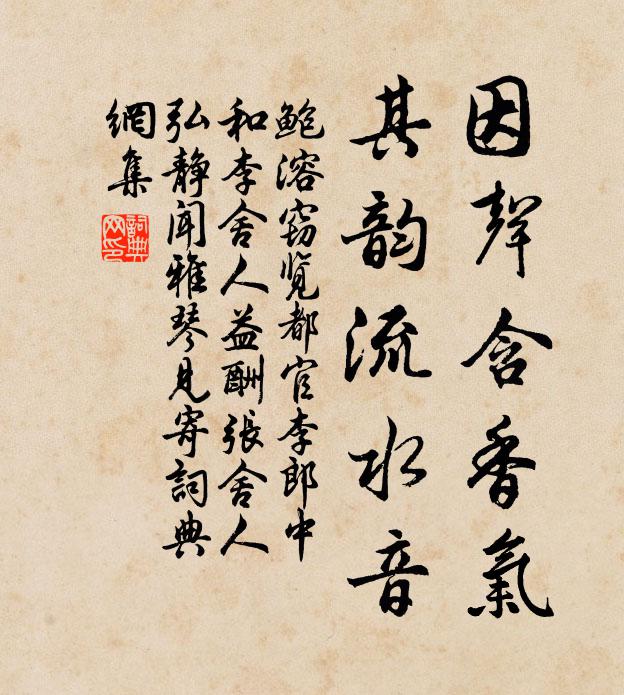 因聲含香氣
其韵流水音
鲍溶窃览都官李郎中
和李舍人益酬張舍人
弘静闻雅琴見寄詞典
網集
詞典
网印